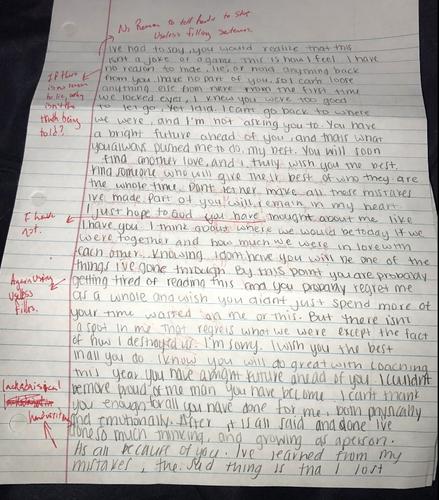 No Reason to tell facts to start
Useless filling sentence.
I've had to say, you would realize that this
not a joke or a game. This is how I feel. I have
no reason to hide, lie, or hold anything back
from you. I have no part of you,
anything else from here from the first time
we locked eyes, I knew you were too good
to let go. Yet I did. I can't go back to where
we were, and I'm not asking you to. You have
a bright future ahead of you, and thats what
you always pushed me to do, my best. You will soon
find another love, and I truly wish you the best.
Find someone who will give the best of who they are
the whole time. Dont let her make all those mistakes
I've made. Part of you will remain in my heart.
I just hope to God you have thought about me like
I have you. I think about where we would be today if we
were together and how much we were in love with
each other. Knowing I dont have you will be one of the
things I've gone through. By this point you are probably
getting tired of reading this and you probably regret me
as a whole and wish you didnt just spend more of
your time wasted on me or this. But there isn't
a spot in me that regrets what we were except the fact
of how I destroyed us. I'm sorry. I wish you the best
in all you do. I know you will do great with coaching
this year. You have a bright future ahead of you. I couldn't
be more proud of the man you have become. I cant thank
you enough for all you have done for me, both physically
and emotionally. After it is all said and done I've
done so much thinking, and growing as a person.
Its all because of you. I've learned from my
mistakes, the sad thing is tha I lost
If there
is no reason
to lie, why
isn't the
truth being
told?
I have
not.
Again using
Useless
fillers.
handwriting